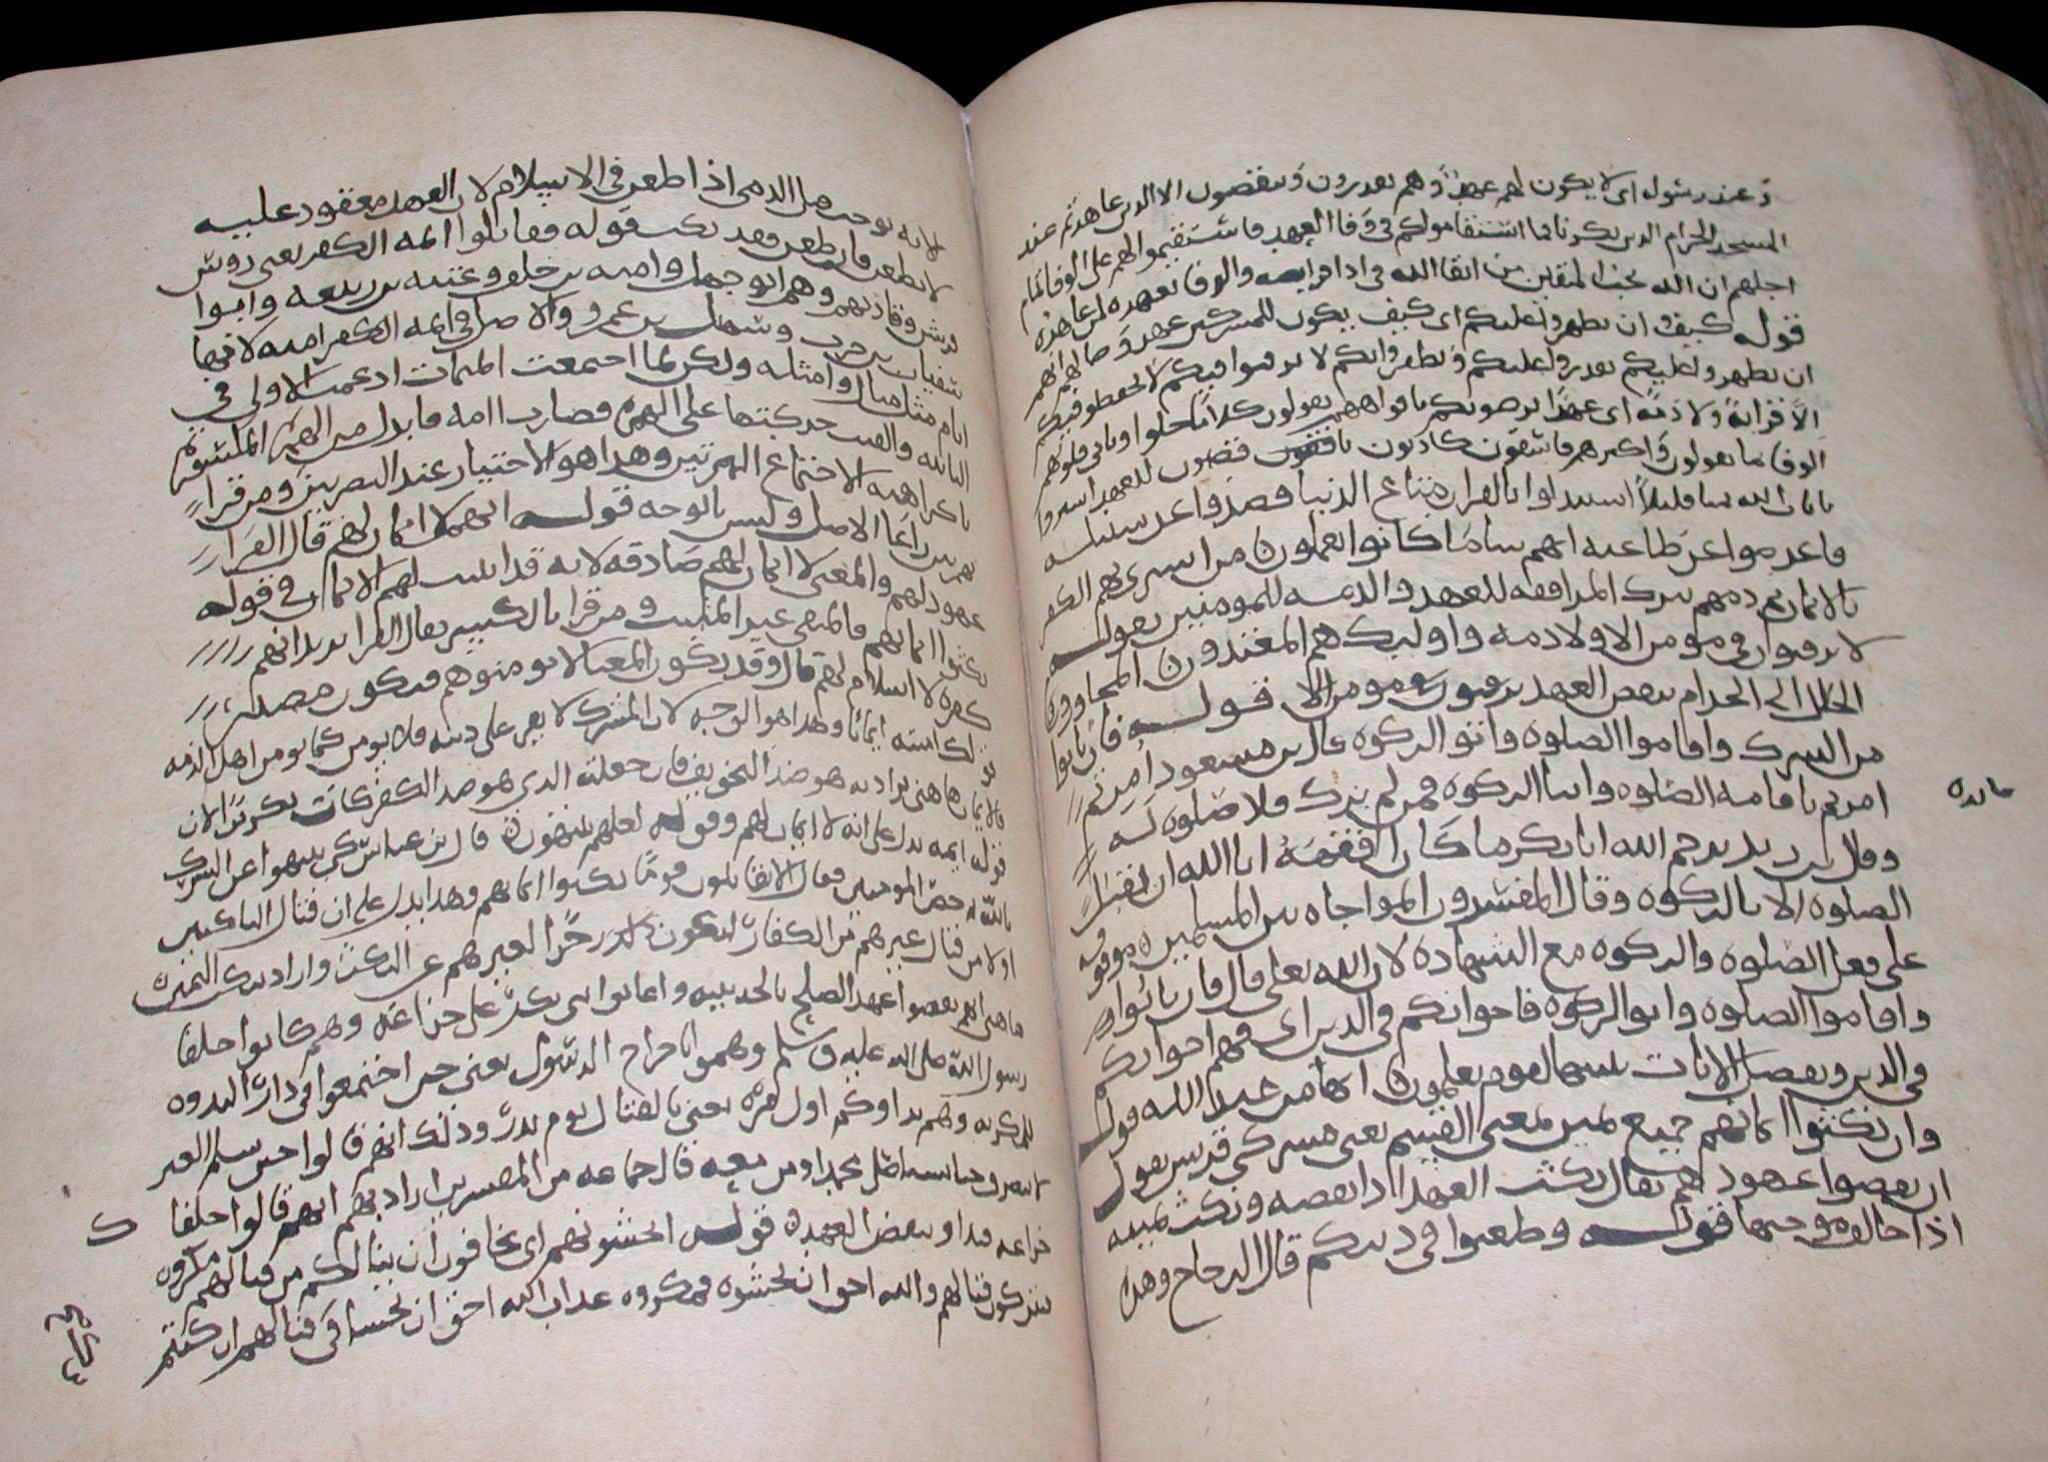 وعند رسوله اى لا يكون لهم عهد وهم يغدرون وينقضون الا الذين عاهدتم عند
المسجد الحرام الذين بكرنا فما استقاموا لكم فى وفا العهد فاستقيموا لهم على الوفا تمام
اجلهم ان الله يحب المتقين من اتقا الله فى ادا فرايضه والوفا بعهده لمن عاهده
قوله كيف وان يظهروا عليكم اى كيف يكون للمشركين عهد وحالهم انهم
ان يظهروا عليكم يقدروا عليكم ويظفروا بكم لا يرقبوا فيكم لا يحفظوا فيكم
الا قرابة ولا ذمة اى عهدا يرضونكم بافواههم يقولون كلاما حلوا وتابى قلوبهم
الوفا بما يقولون واكثرهم فاسقون كاذبون ناقضون للعهد اشتروا
بايات الله ثمنا قليلا استبدلوا بالقران متاع الدنيا فصدوا عن سبيله
فاعرضوا عن طاعته انهم سا ما كانوا يعملون من اشترايهم الكفر
بالايمان ثم ذمهم بترك المراقبة للعهد والذمة للمومنين بقوله
لا يرقبون فى مومن الا ولا ذمة واوليك هم المعتدون المجاوزون
الحلال الى الحرام بنقض العهد قوله فان تابوا
من الشرك واقاموا الصلوه واتوا الزكوه قال بن مسعود امرتم
امرتم باقامه الصلوه وايتا الزكوه فمن لم يزك فلا صلوه له
وقال بن زيد يرحم الله ابا بكر ما كان افقهه ابا الله ان يقبل
الصلوه الا بالزكوه وقال المفسرون المواخاه بين المسلمين موقوفه
على فعل الصلوه والزكوه مع الشهادة لان الله تعلى قال فان تابوا
واقاموا الصلوه واتوا الزكوه فاخوانكم فى الدين اى فهم اخوانكم
فى الدين ونفصل الايات نبينها لقوم يعلمون انها من عند الله قوله
وان نكثوا ايمانهم جميع يمين بمعنى القسم يعنى مشركى قريش يقول
ان نقضوا عهودهم يقال نكث العهد اذا نقضه ونكث يمينه
اذا خالف موجبها قوله وطعنوا فى دينكم قال الزجاج وهذا
لانه يوجب قتل الذمى اذا طعن فى الاسلام لان العهد معقود عليه
لا يطعن فان طعن فقد نكث قوله فقاتلوا ايمه الكفر يعنى روس
قريش وقادتهم وهم ابو جهل واميه بن خلف وعتبه بن ربيعه وابوا
سفيان بن حرب وسهيل بن عمرو والاصل فى ايمه الكفر اممه لانها
امام مثل مثال وامثله ولكن لما اجتمعت الميمات ادغمت الاولى فى
الثانيه والقيت حركتها على الهمزه فصارت اامه فابدل من الهمزه المكسوره
يا كراهيه الاجتماع الهمزتين وهذا هو الاختيار عند البصريين ومن قرا
بهمزتين راعا الاصل وليس بالوجه قوله انهم لا ايمان لهم قال الفرا
عهود لهم والمعنى لا ايمان لهم صادقه لانه قد اثبت لهم الايمان فى قوله
نكثوا ايمانهم فالمنفى غير المثبت ومن قرا بالكسر قال الفرا يريد انهم
كفره لا اسلام لهم قال وقد يكون المعنى لا تومنوهم فيكون مصدر
قولك امنته ايمانا وهذا هو الوجه لان المشرك لا يقر على دينه فلا يومن كما يومن اهل الذمه
فالايمان هاهنا يراد به هو ضد التخويف فان جعلته الذى هو ضد الكفر كان تكريرا لان
قوله ايمه يدل على انه لا ايمان لهم وقوله لعلهم ينتهون قال بن عباس كى ينتهوا عن الشرك
بالله ثم حض المومنين فقال الا تقاتلون قوما نكثوا ايمانهم وهذا يدل على ان قتال الناكثين
اولا من قتال غيرهم من الكفار ليكون ذلك زجرا لغيرهم عن النكث واراد بنكث اليمين
هاهنا انهم نقضوا عهد الصلح بالحديبيه واعانوا بنى بكر على خزاعه وهم كانوا حلفا
رسول الله صلى الله عليه وسلم وهموا باخراج الرسول يعنى حين اجتمعوا فى دار الندوه
للمكر به وهم بداوكم اول مره يعنى بالقتال يوم بدر وذلك انهم قالوا حين سلم العير
لا ننصرف حتى نستاصل محمدا ومن معه قال جماعه من المفسرين اراد بهم انهم قاتلوا حلفا
خزاعه فبداو بنقض العهد قوله اتخشونهم اى تخافون ان ينالكم من قتالهم مكروه
فتتركون قتالهم والله احق ان تخشوه فمكروه عذاب الله احق ان يخشا فى قتالهم ان كنتم